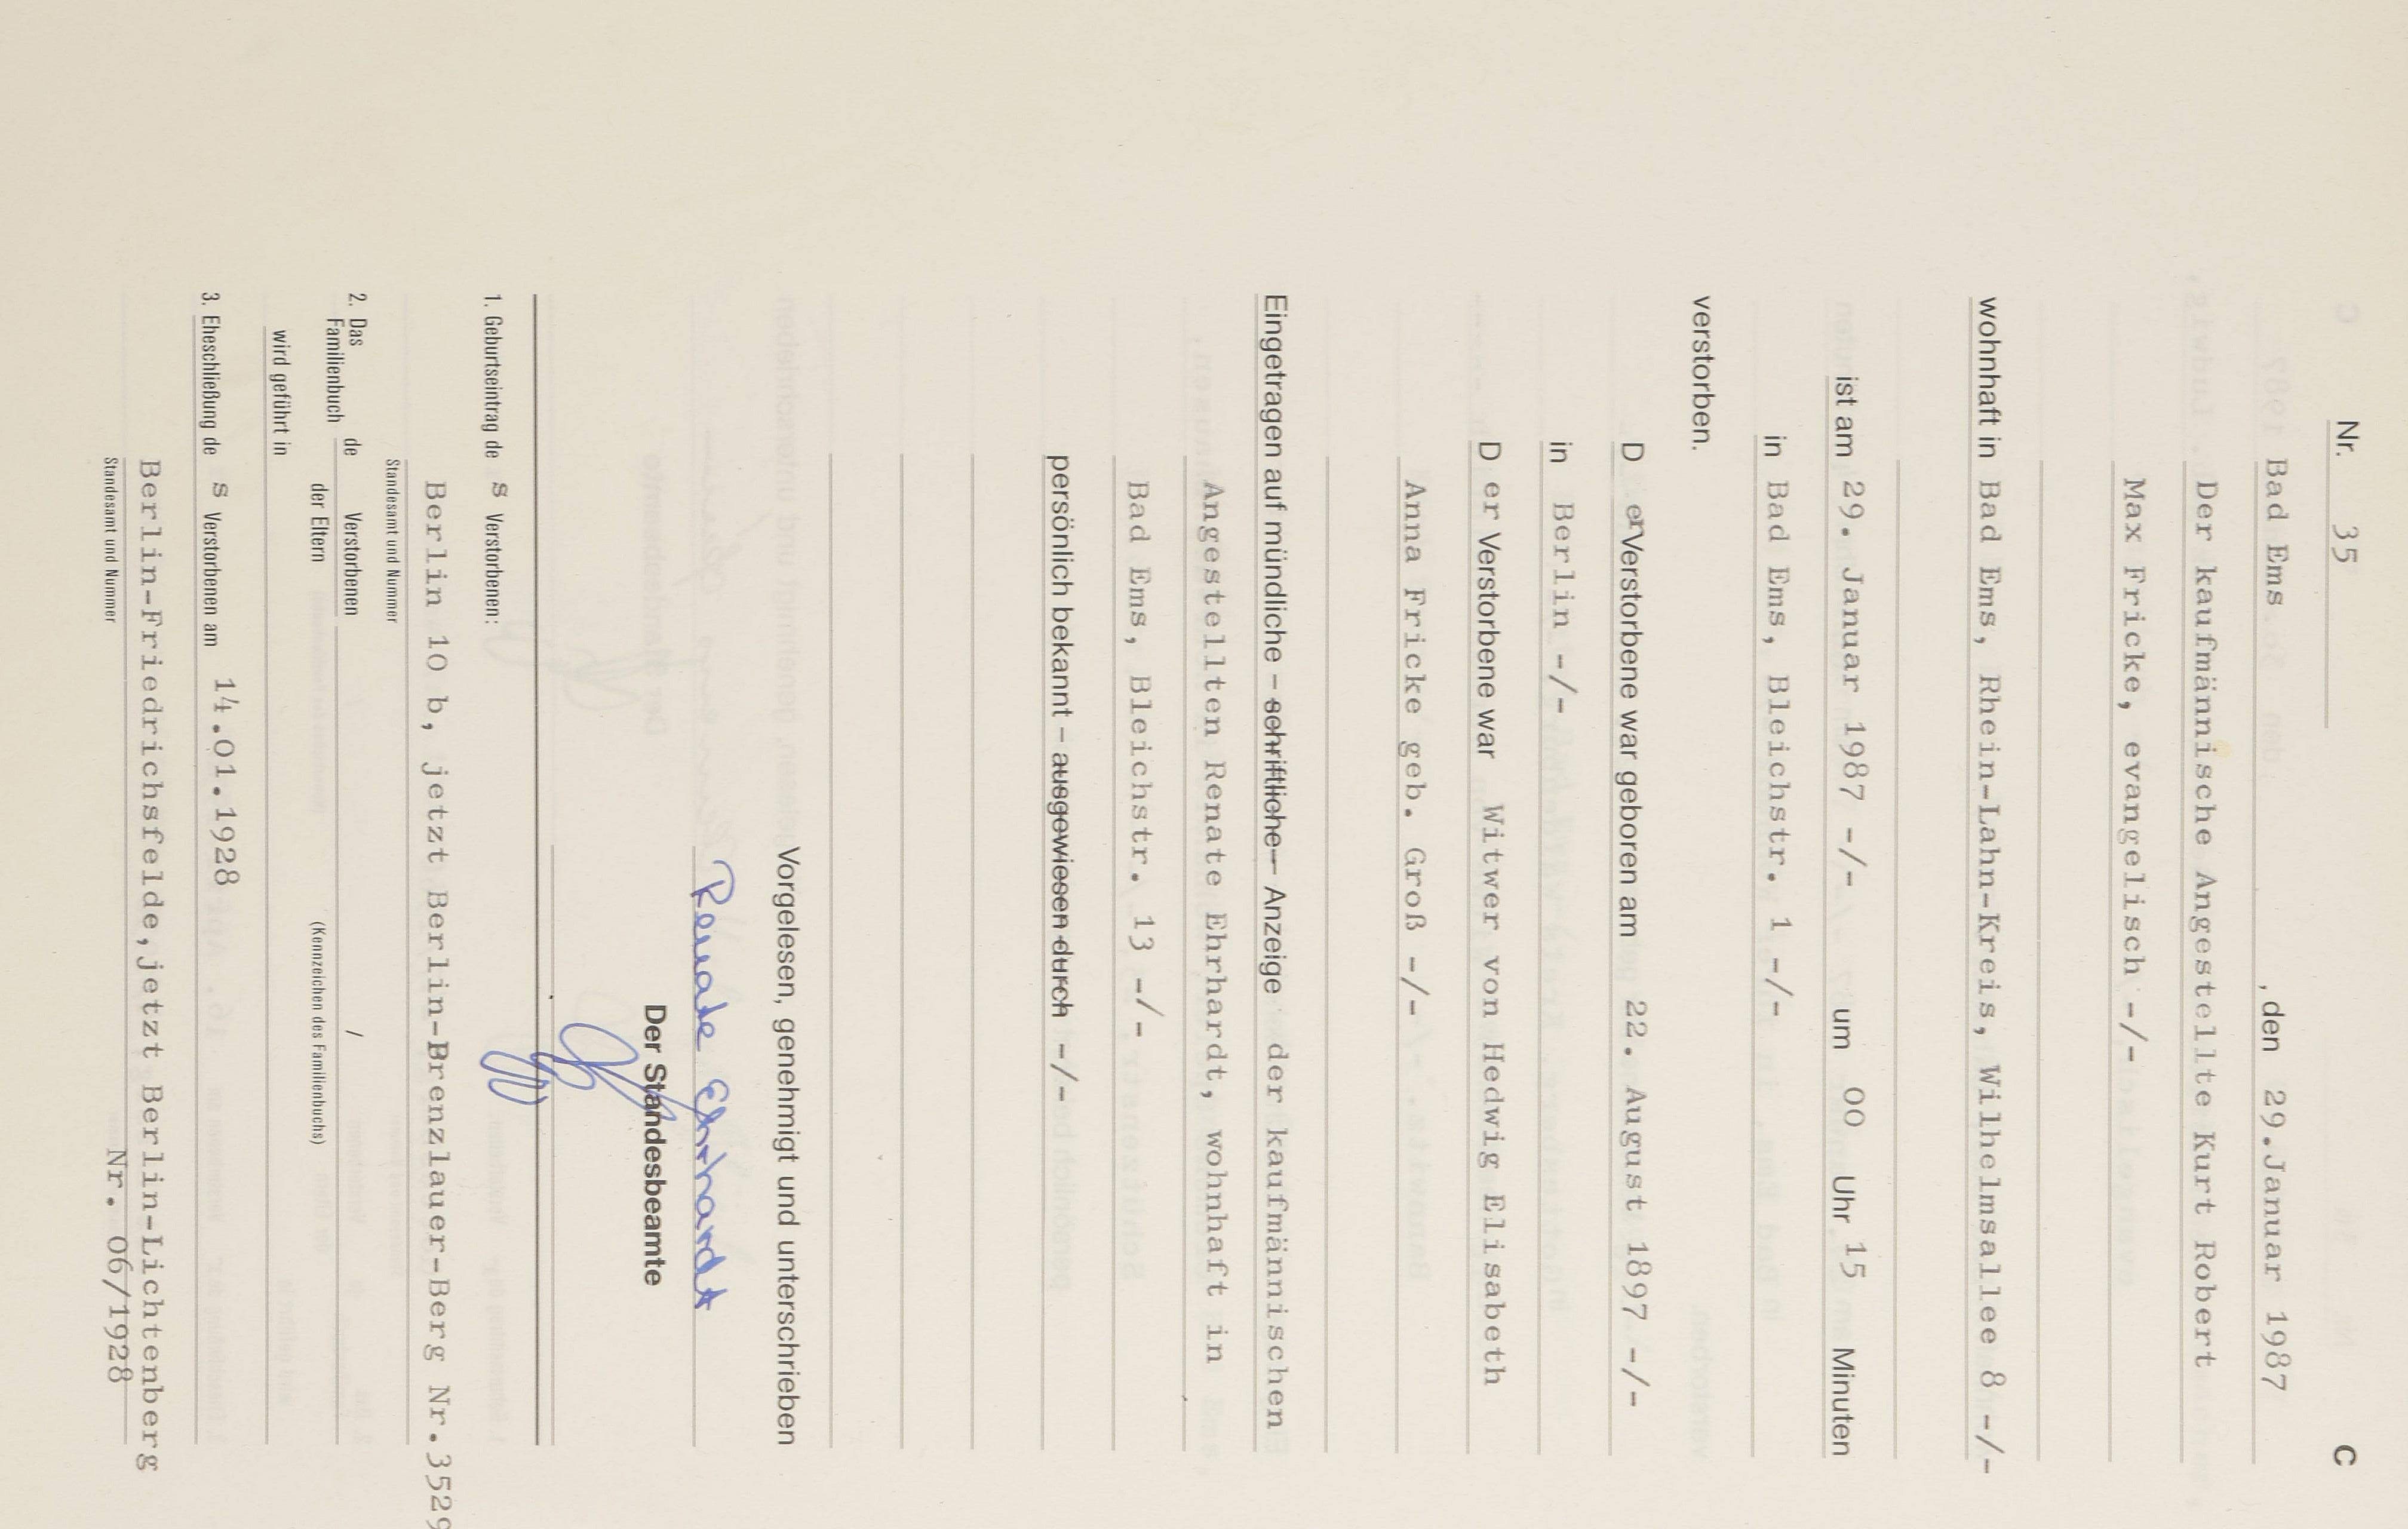 Nr. 35 C
Bad Ems , den 29.Januar 1987
Der kaufmännische Angestellte Kurt Robert
Max Fricke, evangelisch -/-
wohnhaft in Bad Ems, Rhein-Lahn-Kreis, Wilhelmsallee 8 -/-
ist am 29. Januar 1987 -/- um 00 Uhr 15 Minuten
in Bad Ems, Bleichstr. 1 -/-
verstorben.
D er Verstorbene war geboren am 22. August 1897 -/-
in Berlin -/-
D er Verstorbene war Witwer von Hedwig Elisabeth
Anna Fricke geb. Groß -/-
Eingetragen auf mündliche – schriftliche – Anzeige der kaufmännischen
Angestellten Renate Ehrhardt, wohnhaft in
Bad Ems, Bleichstr. 13 -/-
persönlich bekannt – ausgewiesen durch -/-
Vorgelesen, genehmigt und unterschrieben
Renate Ehrhardt
Der Standesbeamte
1. Geburtseintrag de s Verstorbenen:
Berlin 10 b, jetzt Berlin-Prenzlauer-Berg Nr.3529
Standesamt und Nummer
2. Das Familienbuch de Verstorbenen /
der Eltern (Kennzeichen des Familienbuchs)
wird geführt in
3. Eheschließung de s Verstorbenen am 14.01.1928
Berlin-Friedrichsfelde,jetzt Berlin-Lichtenberg
Standesamt und Nummer Nr. 06/1928